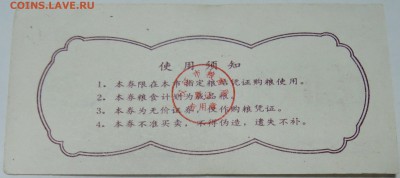 COINS.LAVE.RU
使用须知
1、本券限在本市指定粮站凭证购粮使用。
2、本券粮食计划为
3、本券为无价证券，仅作购粮凭证。
4、本券不准买卖，不得伪造，遗失不补。